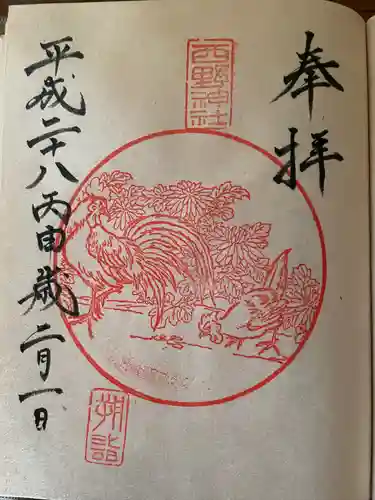 奉拝
西野神社
朔詣
平成二十八丙申歳二月一日